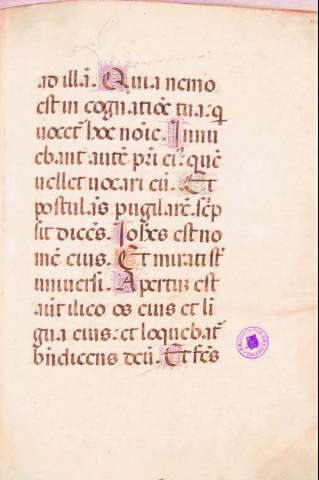 ad illā. Quia nemo
est in cognatiōe tua: q̄
vocet̄ hoc noīe. Innu
ebant autē pr̄i ei᷒: quē
vellet vocari eū. Et
postulās pugilarē scrip
sit dicēs. Ioh̄es est no
mē eius. Et mirati st̄
universi. Apertū est
aūt ilico os eius et li
gua eius: et loquebat̄
bn̄dicens deū. Et fc̄s